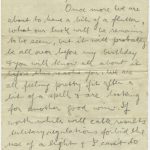 Once more we are
about to have a bit of a flutter,
what our luck will be remains
to be seen, but it will probably
be all over before my birthday
& you will know all about it
before this reaches you. We are
all feeling pretty fit after a
bit of a spell & are looking
for another good win. If
military regulations forbid the
use of a light & I can't do